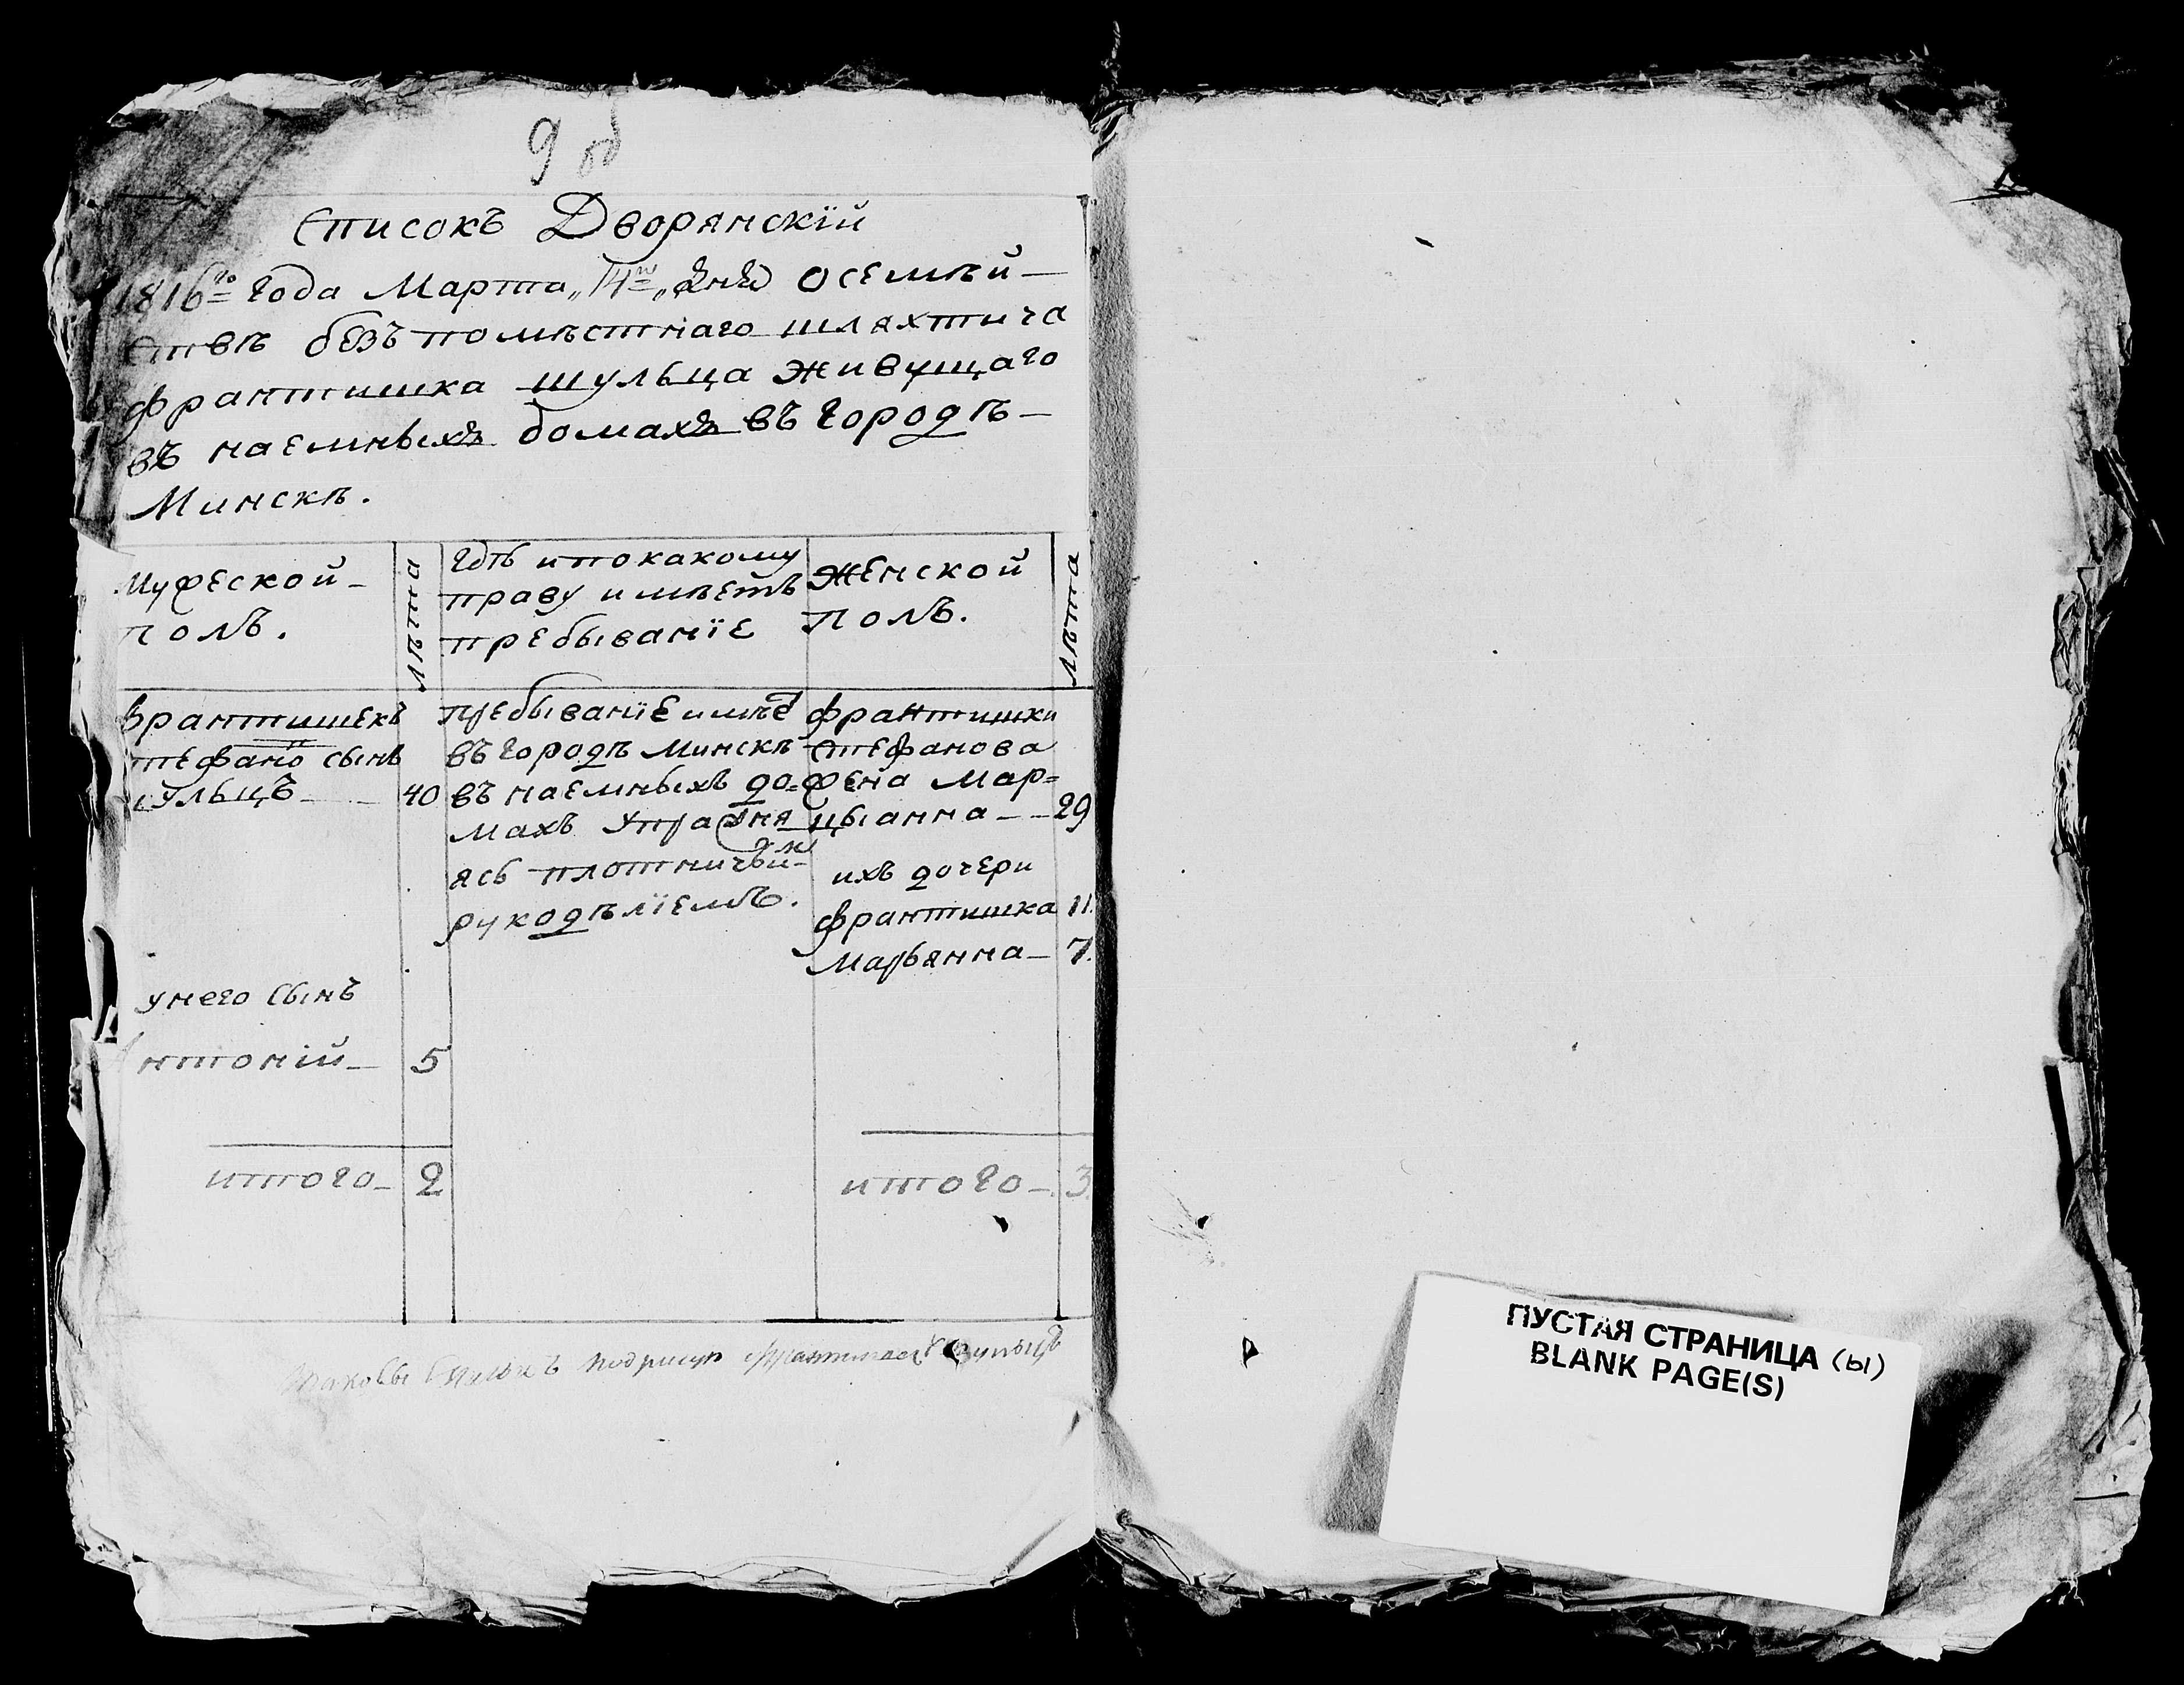 9 об
Списокъ Дворянскїй
1816го года Марта „14го„ дня о семѣй-
ствѣ безъ помѣстнаго шляхтича
Франтишка шульца живущаго
въ наемныхъ домахъ въ городѣ
Минскѣ.
Мужеской
полъ.
лѣта
гдѣ и по какому
праву имѣетъ
пребыванїе
Женской
полъ.
лѣта
Франтишекъ
тефано сынъ
шульцъ 40
пребыванїе имѣе
въ городѣ Минскѣ
въ наемныхъ до-
махъ Упражня
ясь плотничьимъ
рукодѣлїемъ.
Франтишка
Стефанова
жена Мар=
цыанна 29
ихъ дочери
Франтишка 11.
Марьянна 7.
у него сынъ
нтонїй 5
итого 2
итого 3.
ПУСТАЯ СТРАНИЦА (Ы)
BLANK PAGE(S)